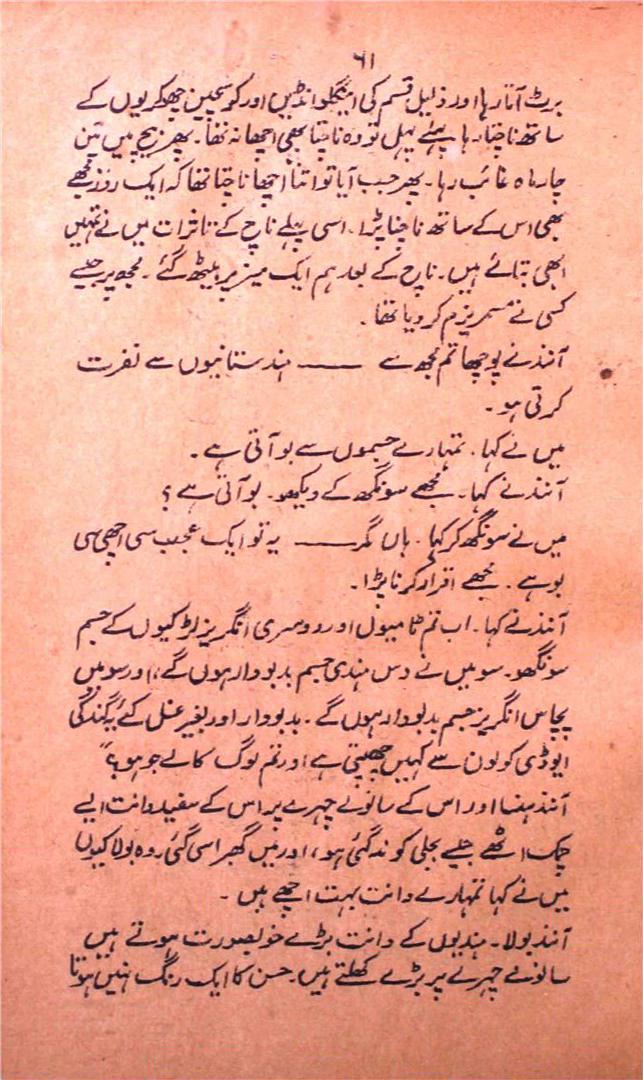 ۶۱
برٹ آتا رہا اور ذلیل قسم کی اینگلو انڈین اور کوسچین چھوکریوں کے
ساتھ ناچتا رہا پہلے پہل تو وہ ناچتا بھی اچھا نہ تھا۔ پھر بیچ میں تین
چار ماہ غائب رہا۔ پھر جب آیا تو اتنا اچھا ناچتا تھا کہ ایک روز مجھے
بھی اس کے ساتھ ناچنا پڑا۔ اسی پہلے ناچ کے تاثرات میں نے تمہیں
ابھی بتائے ہیں۔ ناچ کے بعد ہم ایک میز پر بیٹھ گئے۔ مجھ پر جیسے
کسی نے مسمریزم کر دیا تھا۔
آنند نے پوچھا تم مجھ سے ــــــ ہندستانیوں سے نفرت
کرتی ہو۔
میں نے کہا۔ تمہارے جسموں سے بو آتی ہے۔
آنند نے کہا۔ مجھے سونگھ کے دیکھو۔ بو آتی ہے؟
میں نے سونگھ کر کہا۔ ہاں مگر ــــــ یہ تو ایک عجیب سی اچھی سی
بو ہے۔ مجھے اقرار کرنا پڑا۔
آنند نے کہا۔ اب تم ٹامیوں اور دوسری انگریز لڑکیوں کے جسم
سونگھو۔ سو میں نے دس ہندی جسم بدبو دار ہوں گے، اور سو میں
پچاس انگریز جسم بدبودار ہوں گے۔ بدبودار اور بغیر غسل کئے یہ گندگی
ایوڈی کولون سے کہیں چھپتی ہے اور تم لوگ کالے جو ہو؟"
آنند ہنسا اور اس کے سانولے چہرے پر اس کے سفید دانت ایسے
چمک اٹھے جیسے بجلی کوند گئی ہو، اور میں گھبرا سی گئی۔ وہ بولا کیوں
میں نے کہا تمہارے دانت بہت اچھے ہیں۔
آنند بولا۔ ہندیوں کے دانت بڑے خوبصورت ہوتے ہیں
سانولے چہرے پر بڑے کھلتے ہیں۔ حسن کا ایک رنگ نہیں ہوتا